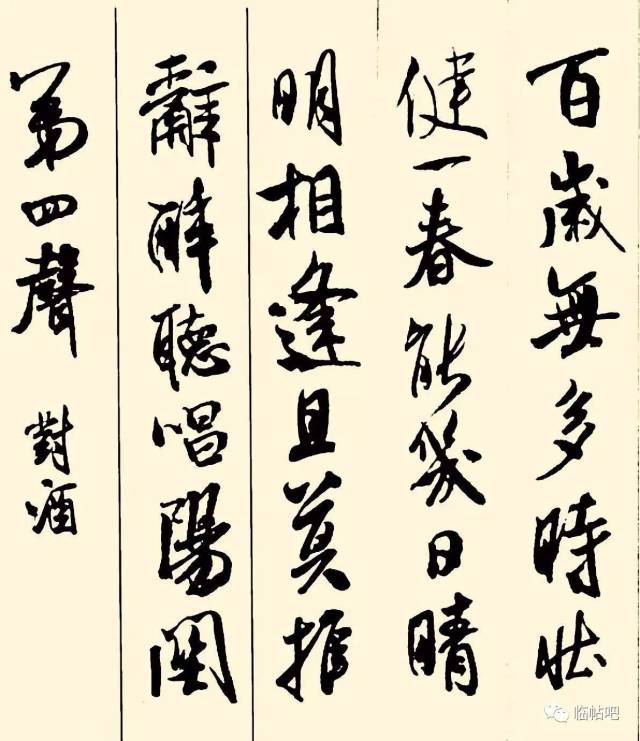 百歲無多時壯
健一春能幾日晴
明相逢且莫推
辭醉聽唱陽關
第四聲 對酒
临帖吧